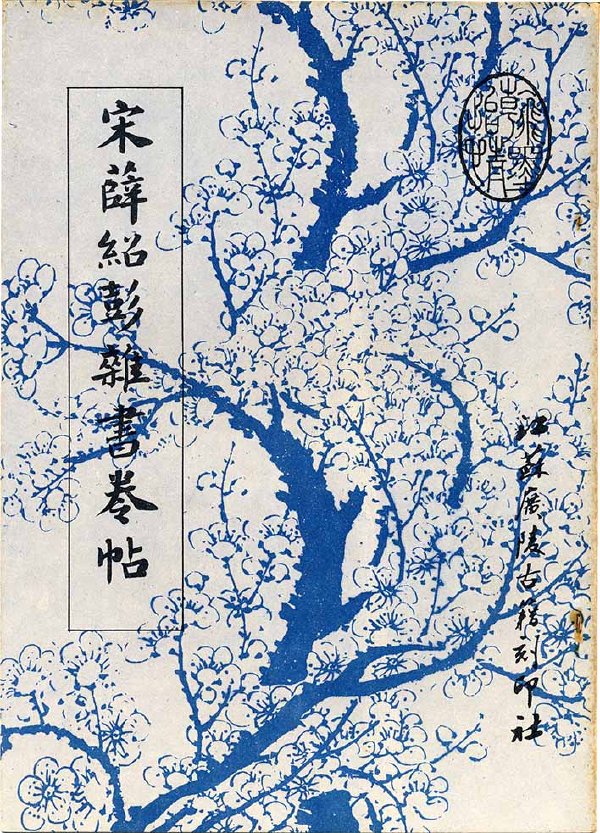 宋薛紹彭雜書卷帖
江蘇廣陵古籍刻印社